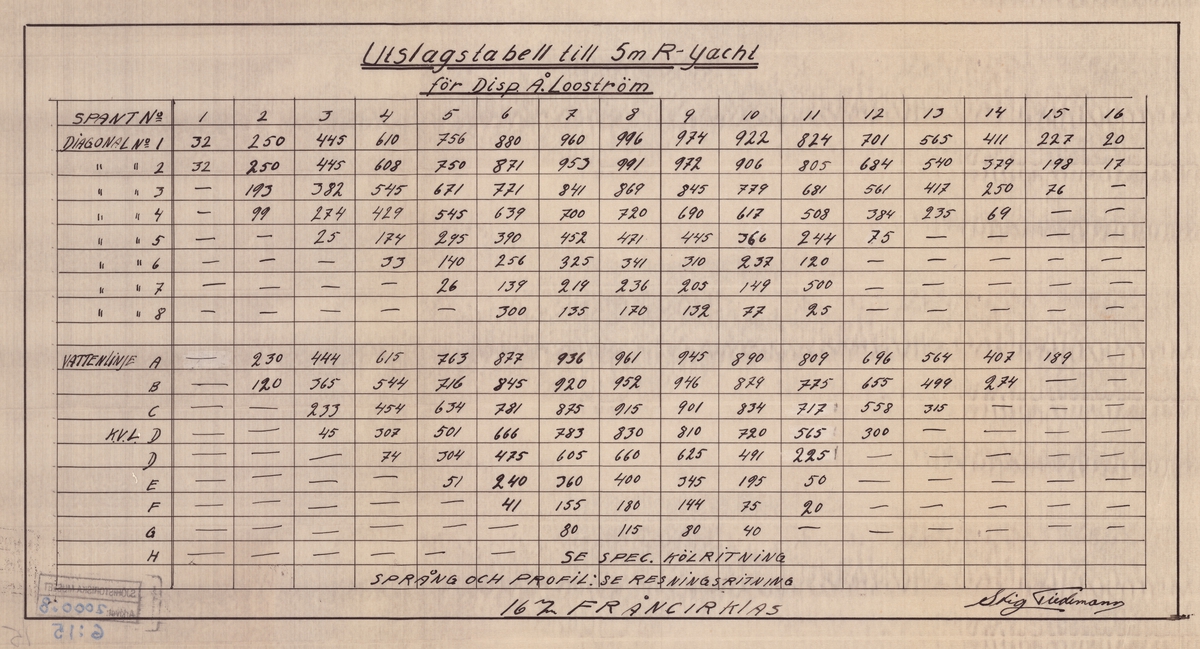 Utslagstabell till 5m R-Yacht
för Disp. Å. Looström
SPANT No 1 2 3 4 5 6 7 8 9 10 11 12 13 14 15 16
DIAGONAL No 1 32 250 445 610 756 880 960 996 974 922 824 701 565 411 227 20
" " 2 32 250 445 608 750 871 953 991 972 906 805 684 540 379 198 17
" " 3 — 193 382 545 671 771 841 869 845 779 681 561 417 250 76 —
" " 4 — 99 274 429 545 639 700 720 690 617 508 384 235 69 — —
" " 5 — — 25 174 295 390 452 471 445 366 244 75 — — — —
" " 6 — — — 33 140 256 325 341 310 237 120 — — — — —
" " 7 — — — — 26 139 219 236 205 149 500 — — — — —
" " 8 — — — — — 300 135 170 132 77 25 — — — — —
VATTENLINJE A — 230 444 615 763 877 936 961 945 890 809 696 564 407 189 —
B — 120 365 544 716 845 920 952 946 879 775 655 499 274 — —
C — — 233 454 634 781 875 915 901 834 717 558 315 — — —
K.V.L. D — — 45 307 501 666 783 830 810 720 565 300 — — — —
D — — — 74 304 475 605 660 625 491 225 — — — — —
E — — — — 51 240 360 400 345 195 50 — — — — —
F — — — — — 41 155 180 144 75 20 — — — — —
G — — — — — — 80 115 80 40 — — — — — —
H — — — — — — SE SPEC. KÖLRITNING
SPRÅNG OCH PROFIL: SE RESNINGSRITNING
167 FRÅNCIRKLAS
Stig Tiedemann
SJÖHISTORISKA MUSEET
2000:8
6:15